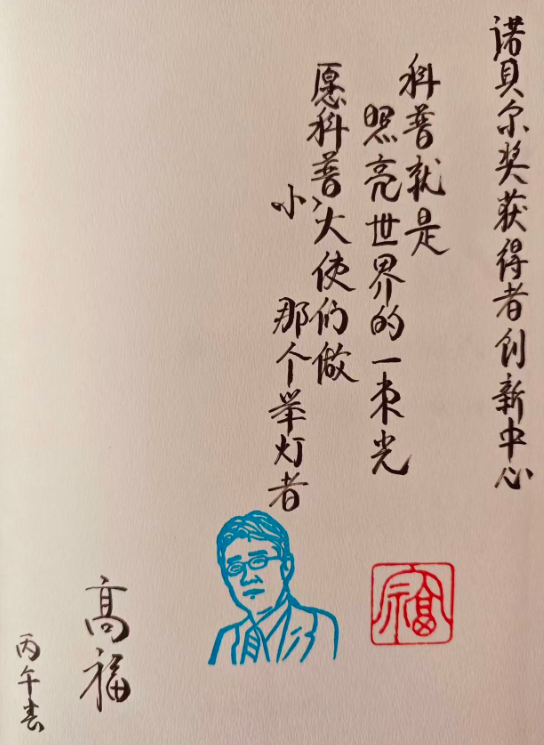 诺贝尔奖获得者创新中心
科普就是
照亮世界的一束光
愿科普小大使们做
那个举灯者
福
高福
丙午春